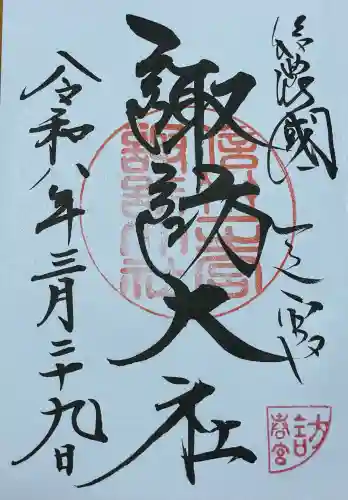 信濃國一之宮
諏訪大社
令和八年三月二十九日
諏訪
春宮